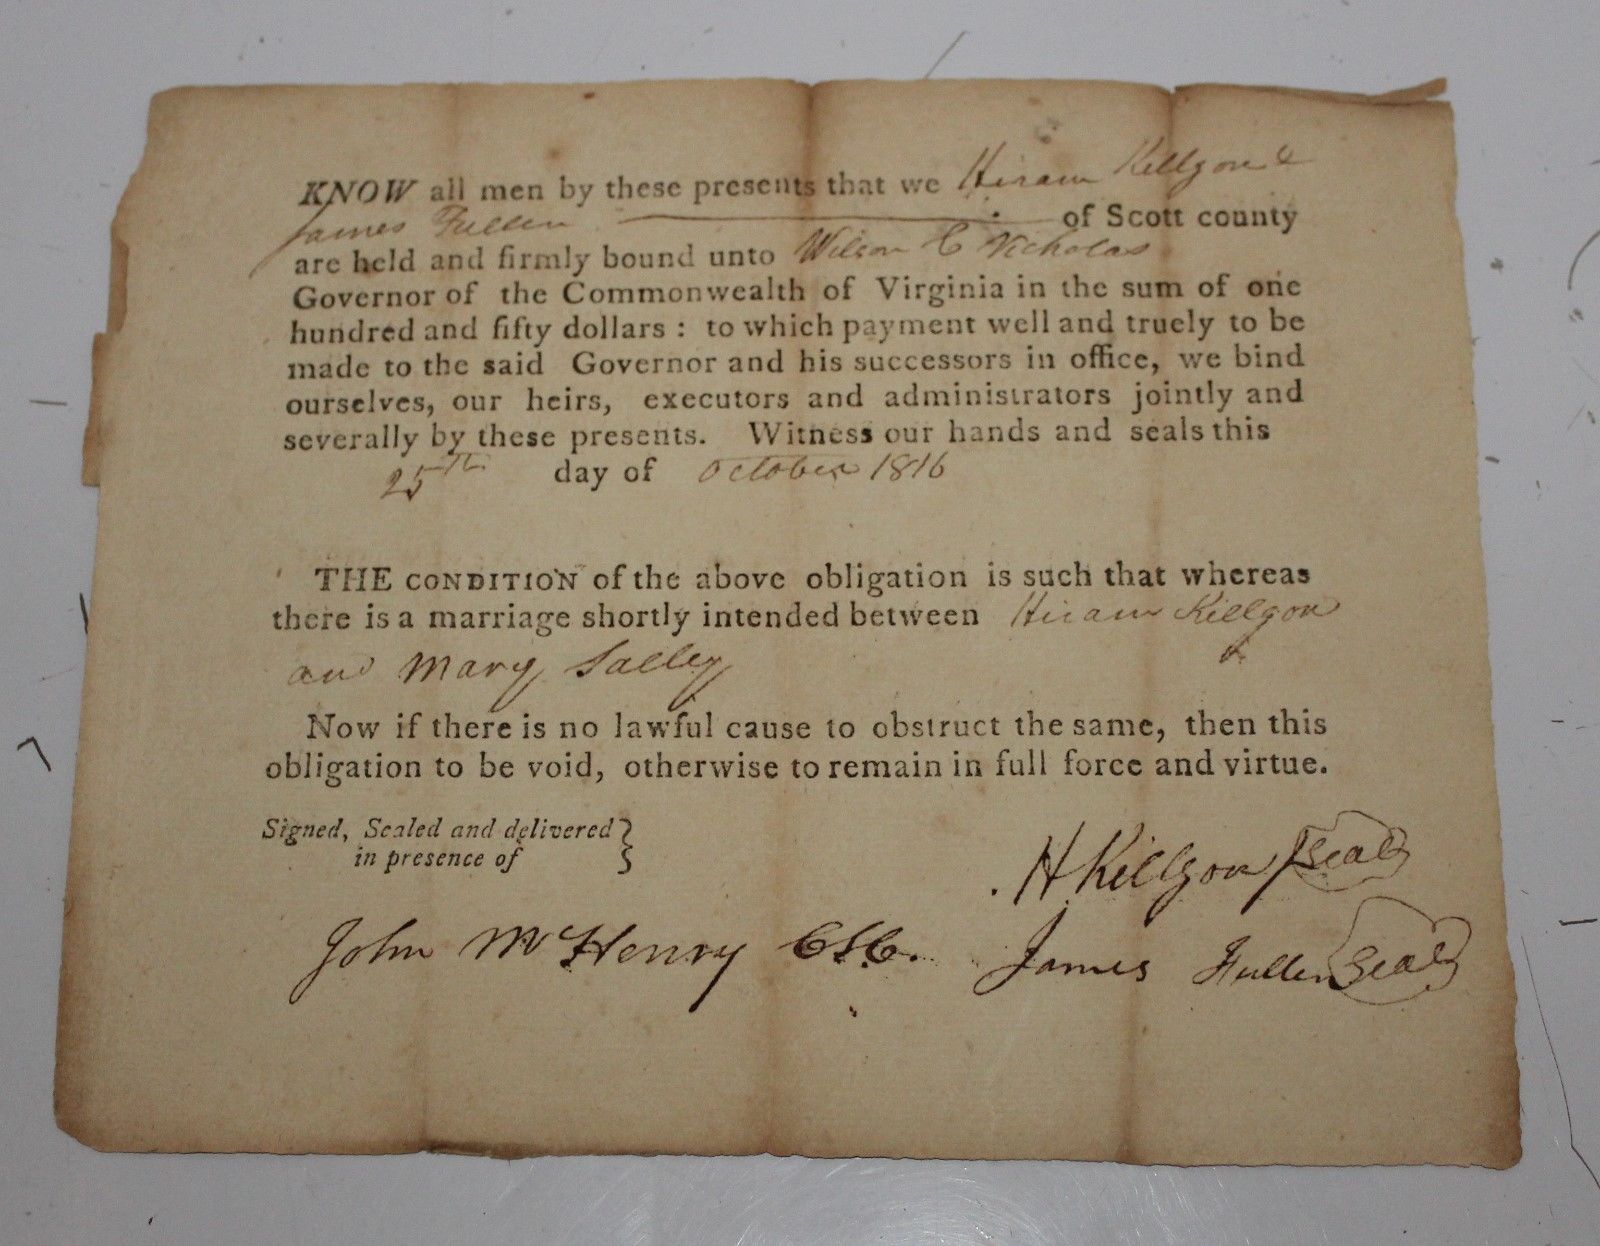 KNOW all men by these presents that we Hiram Killgore &
James Fullen of Scott county
are held and firmly bound unto Wilson C Nicholas
Governor of the Commonwealth of Virginia in the sum of one
hundred and fifty dollars : to which payment well and truely to be
made to the said Governor and his successors in office, we bind
ourselves, our heirs, executors and administrators jointly and
severally by these presents. Witness our hands and seals this
25th day of October 1816
THE CONDITION of the above obligation is such that whereas
there is a marriage shortly intended between Hiram Killgore
and Mary Salley
Now if there is no lawful cause to obstruct the same, then this
obligation to be void, otherwise to remain in full force and virtue.
Signed, Sealed and delivered }
in presence of
H Killgore Seal
John McHenry CSC.
James Fullen Seal